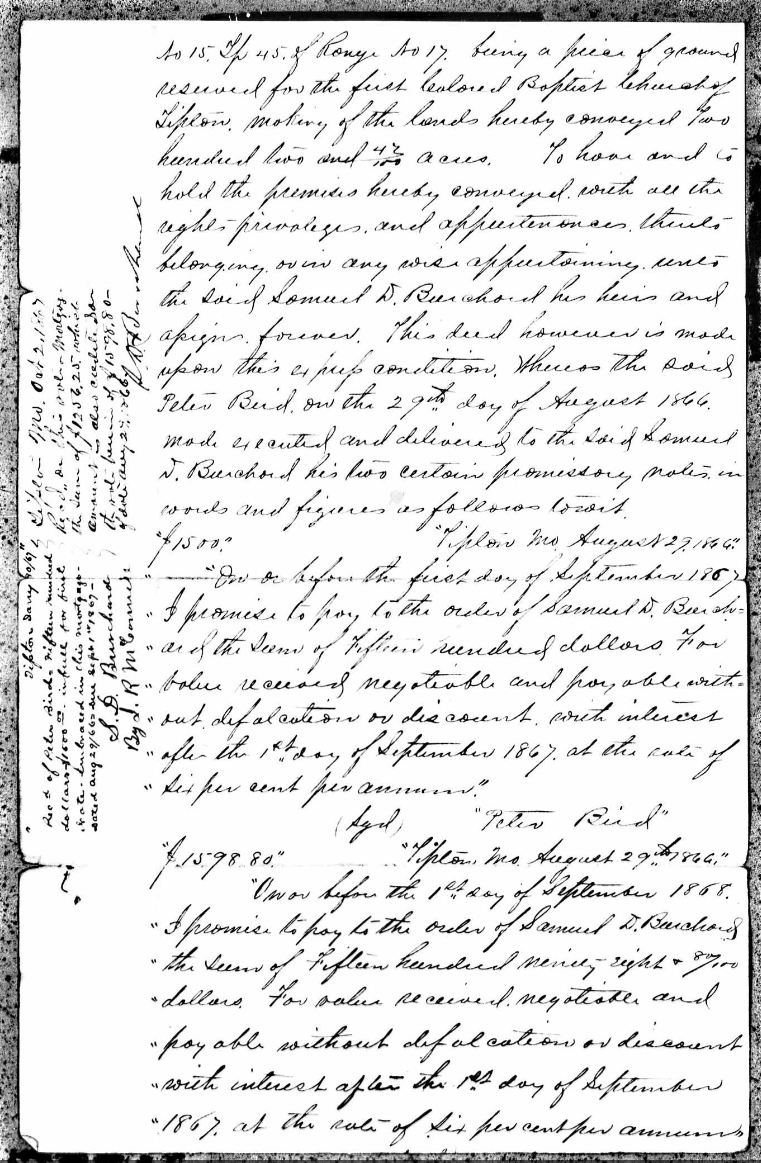 No 15. Tp 45. of Range No 17. being a piece of ground
reserved for the first Colored Baptist Church of
Tipton, making of the lands hereby conveyed Two
hundred two and 42/100 acres. To have and to
hold the premises hereby conveyed. with all the
rights privileges. and appurtenances. thereto
belonging. or in any wise appertaining. unto
the said Samuel D. Burchard his heirs and
assigns. forever. This deed however is made
upon this express condition. Whereas the said
Peter Bird. on the 29th day of August 1866.
made executed and delivered to the said Samuel
D. Burchard his two certain promissory notes. in
words and figures as follows towit.
"$1500." "Tipton Mo. August 29, 1866."
"On or before the first day of September 1867
" I promise to pay to the order of Samuel D. Burch=
" ard the sum of Fifteen hundred dollars. For
" value received negotiable and payable with=
" out defalcation or discount. with interest
" after the 1st day of September 1867. at the rate of
" six per cent per annum."
(Sgd) "Peter Bird"
"$1598.80." "Tipton, Mo. August 29th 1866."
"On or before the 1st day of September 1868.
" I promise to pay to the order of Samuel D. Burchard
" the sum of Fifteen hundred ninety eight & 80/100
" dollars. For value received. negotiable and
" payable without defalcation or discount
" with interest after the 1st day of September
" 1867. at the rate of six per cent per annum"
Tipton Mo. Oct 2, 1867
Recd on this within Mortgage
the sum of $1256.25 which
amount is also credited on
the note sum of $1598.80
dated Aug 29, 1866
S. D. Burchard
"Tipton
Rec'd of Peter Bird Fifteen hundred
dollars $1500.00 in full for first
note embraced in this mortgage
dated Aug 29/66 due Sept 1st 1867
S. D. Burchard
By J. R. McConnell